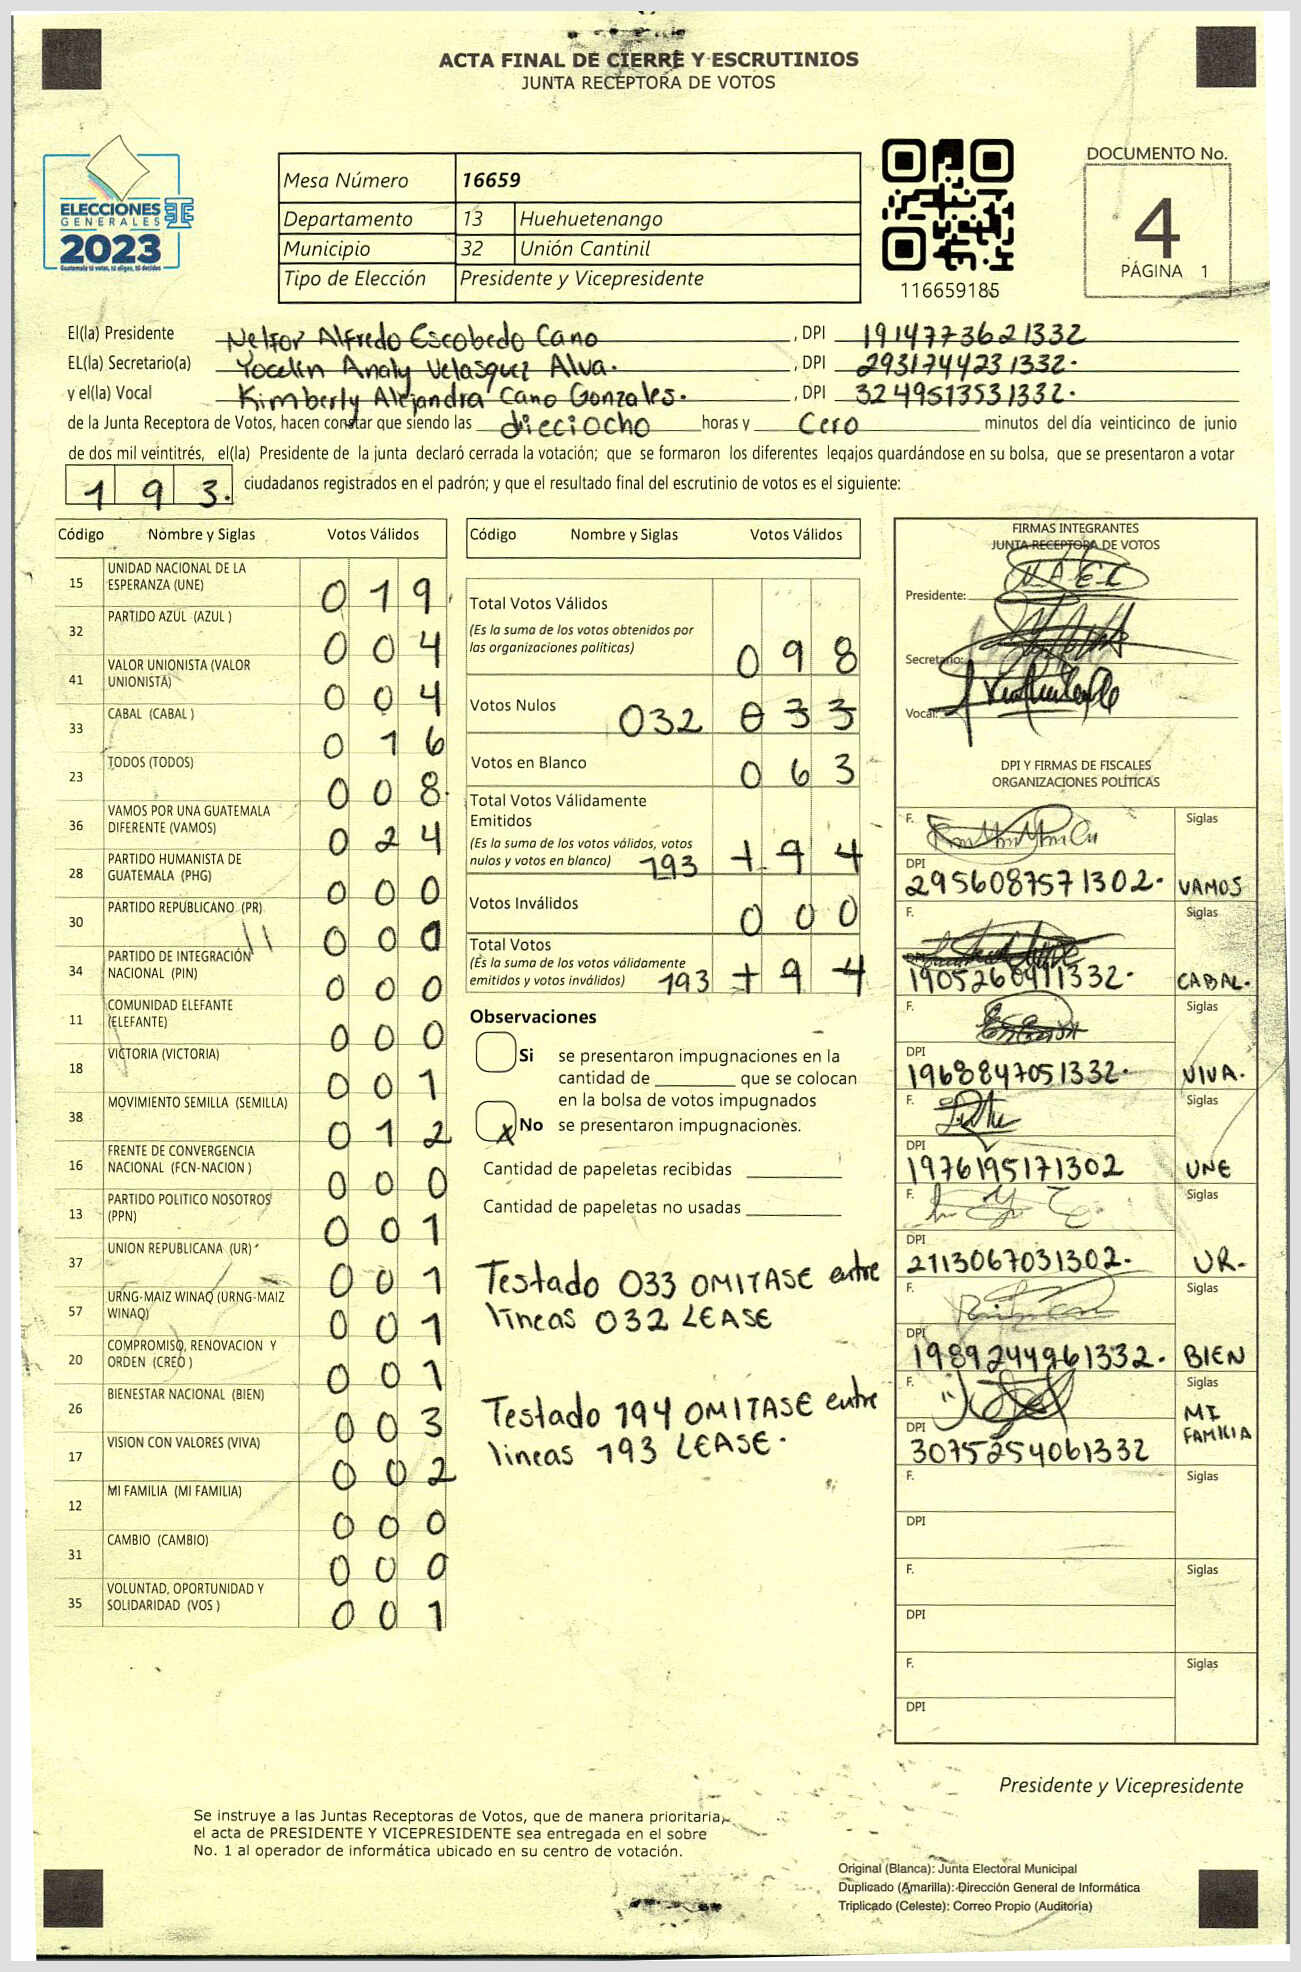 ACTA FINAL DE CIERRE Y ESCRUTINIOS
JUNTA RECEPTORA DE VOTOS
ELECCIONES
GENERALES
2023
Guatemala tú votas, tú eliges, tú decides
Mesa Número 16659
Departamento 13 Huehuetenango
Municipio 32 Unión Cantinil
Tipo de Elección Presidente y Vicepresidente
116659185
DOCUMENTO No.
4
PÁGINA 1
El(la) Presidente Neftor Alfredo Escobedo Cano , DPI 1914773621332
EL(la) Secretario(a) Yocelin Analy Velasquez Alva. , DPI 2931744231332.
y el(la) Vocal Kimberly Alejandra Cano Gonzales. , DPI 3249513531332.
de la Junta Receptora de Votos, hacen constar que siendo las dieciocho horas y Cero minutos del día veinticinco de junio
de dos mil veintitrés, el(la) Presidente de la junta declaró cerrada la votación; que se formaron los diferentes legajos guardándose en su bolsa, que se presentaron a votar
193. ciudadanos registrados en el padrón; y que el resultado final del escrutinio de votos es el siguiente:
Código Nombre y Siglas Votos Válidos
15 UNIDAD NACIONAL DE LA
ESPERANZA (UNE) 019
32 PARTIDO AZUL (AZUL ) 004
41 VALOR UNIONISTA (VALOR
UNIONISTA) 004
33 CABAL (CABAL ) 016
23 TODOS (TODOS) 008
36 VAMOS POR UNA GUATEMALA
DIFERENTE (VAMOS) 024
28 PARTIDO HUMANISTA DE
GUATEMALA (PHG) 000
30 PARTIDO REPUBLICANO (PR) 000
34 PARTIDO DE INTEGRACIÓN
NACIONAL (PIN) 000
11 COMUNIDAD ELEFANTE
(ELEFANTE) 000
18 VICTORIA (VICTORIA) 001
38 MOVIMIENTO SEMILLA (SEMILLA) 012
16 FRENTE DE CONVERGENCIA
NACIONAL (FCN-NACION ) 000
13 PARTIDO POLITICO NOSOTROS
(PPN) 001
37 UNION REPUBLICANA (UR) 001
57 URNG-MAIZ WINAQ (URNG-MAIZ
WINAQ) 001
20 COMPROMISO, RENOVACION Y
ORDEN (CREO ) 001
26 BIENESTAR NACIONAL (BIEN) 003
17 VISION CON VALORES (VIVA) 002
12 MI FAMILIA (MI FAMILIA) 000
31 CAMBIO (CAMBIO) 000
35 VOLUNTAD, OPORTUNIDAD Y
SOLIDARIDAD (VOS ) 001
Código Nombre y Siglas Votos Válidos
Total Votos Válidos
(Es la suma de los votos obtenidos por
las organizaciones políticas) 098
Votos Nulos 032 033
Votos en Blanco 063
Total Votos Válidamente
Emitidos
(Es la suma de los votos válidos, votos
nulos y votos en blanco) 193 194
Votos Inválidos 000
Total Votos
(Es la suma de los votos válidamente
emitidos y votos inválidos) 193 194
Observaciones
Si se presentaron impugnaciones en la
cantidad de ________ que se colocan
en la bolsa de votos impugnados
x No se presentaron impugnaciones.
Cantidad de papeletas recibidas
Cantidad de papeletas no usadas
Testado 033 OMITASE entre
lineas 032 LEASE
Testado 194 OMITASE entre
lineas 193 LEASE.
FIRMAS INTEGRANTES
JUNTA RECEPTORA DE VOTOS
Presidente: N.A.E.C
Secretario:
Vocal:
DPI Y FIRMAS DE FISCALES
ORGANIZACIONES POLÍTICAS
F. Siglas
DPI
2956087571302. VAMOS
F. Siglas
DPI
1905260911332. CABAL.
F. Siglas
DPI
1968847051332. VIVA.
F. Siglas
DPI
1976195171302 UNE
F. Siglas
DPI
2113067031302. UR.
F. Siglas
DPI
1989244961332. BIEN
F. Siglas
DPI
3075254061332 MI
FAMILIA
F. Siglas
DPI
F. Siglas
DPI
F. Siglas
DPI
Presidente y Vicepresidente
Se instruye a las Juntas Receptoras de Votos, que de manera prioritaria,
el acta de PRESIDENTE Y VICEPRESIDENTE sea entregada en el sobre
No. 1 al operador de informática ubicado en su centro de votación.
Original (Blanca): Junta Electoral Municipal
Duplicado (Amarilla): Dirección General de Informática
Triplicado (Celeste): Correo Propio (Auditoría)